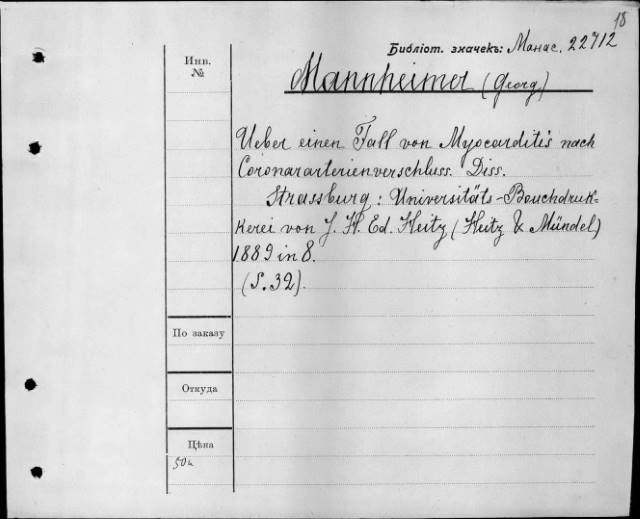 18
Библіот. значекъ: Манас. 22712
Инв.
№
Mannheimer (Georg.)
Ueber einen Fall von Myocarditis nach
Coronararterienverschluss. Diss.
Strassburg: Universitäts-Bouchdruk-
kerei von J. H. Ed. Heitz (Heitz & Mündel)
1889 in 8.
(S. 32).
По заказу
Откуда
Цѣна
50к